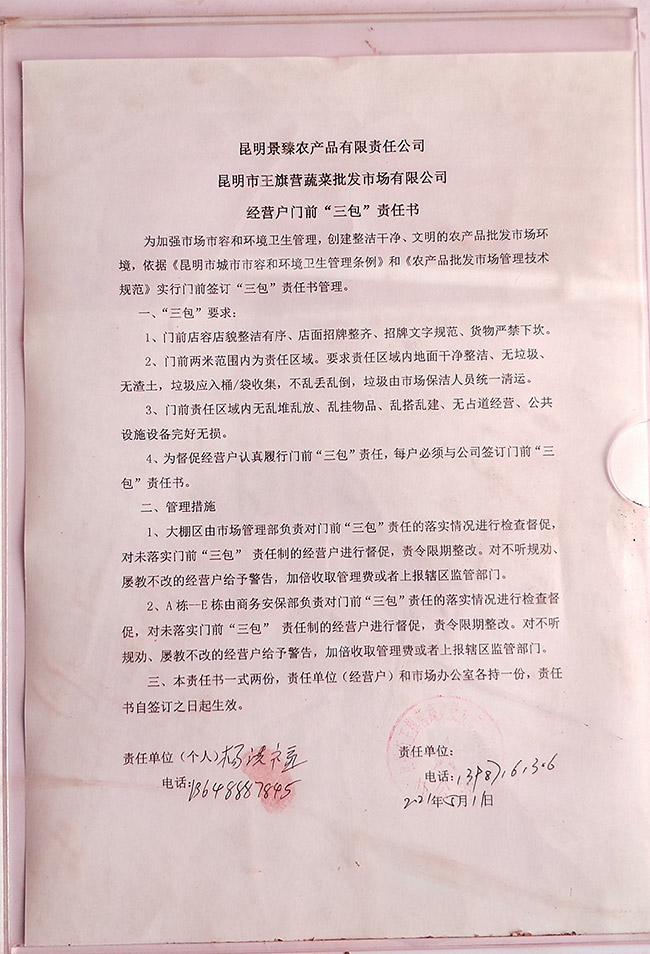 昆明景臻农产品有限责任公司
昆明市王旗营蔬菜批发市场有限公司
经营户门前“三包”责任书
为加强市场市容和环境卫生管理，创建整洁干净、文明的农产品批发市场环
境，依据《昆明市城市市容和环境卫生管理条例》和《农产品批发市场管理技术
规范》实行门前签订“三包”责任书管理。
一、“三包”要求：
1、门前店容店貌整洁有序、店面招牌整齐、招牌文字规范、货物严禁下坎。
2、门前两米范围内为责任区域。要求责任区域内地面干净整洁、无垃圾、
无渣土，垃圾应入桶/袋收集，不乱丢乱倒，垃圾由市场保洁人员统一清运。
3、门前责任区域内无乱堆乱放、乱挂物品、乱搭乱建、无占道经营、公共
设施设备完好无损。
4、为督促经营户认真履行门前“三包”责任，每户必须与公司签订门前“三
包”责任书。
二、管理措施
1、大棚区由市场管理部负责对门前“三包”责任的落实情况进行检查督促，
对未落实门前“三包” 责任制的经营户进行督促，责令限期整改。对不听规劝、
屡教不改的经营户给予警告，加倍收取管理费或者上报辖区监管部门。
2、A栋--E栋由商务安保部负责对门前“三包”责任的落实情况进行检查督
促，对未落实门前“三包” 责任制的经营户进行督促，责令限期整改。对不听
规劝、屡教不改的经营户给予警告，加倍收取管理费或者上报辖区监管部门。
三、本责任书一式两份，责任单位（经营户）和市场办公室各持一份，责任
书自签订之日起生效。
责任单位（个人）杨
责任单位：
电话:13648887845
电话:
2021年5月11日